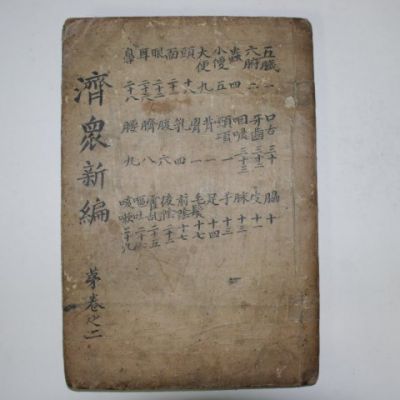 五臟 一
六腑
蟲 四
小便 五
大便 九
頭 十八
面 二十
眼 二十三
耳
鼻 二十八
口舌 三十
牙齒 三十二
咽喉 三十三
頸項 一
背 一
胷 一
乳 四
腹 六
臍 八
腰 九
脇 十
皮 十一
脉 十三
手 十三
足 十四
毛髮 十七
前陰 十七
後陰 二十二
霍乱 二十五
嘔吐
咳嗽
濟衆新編
卷之二